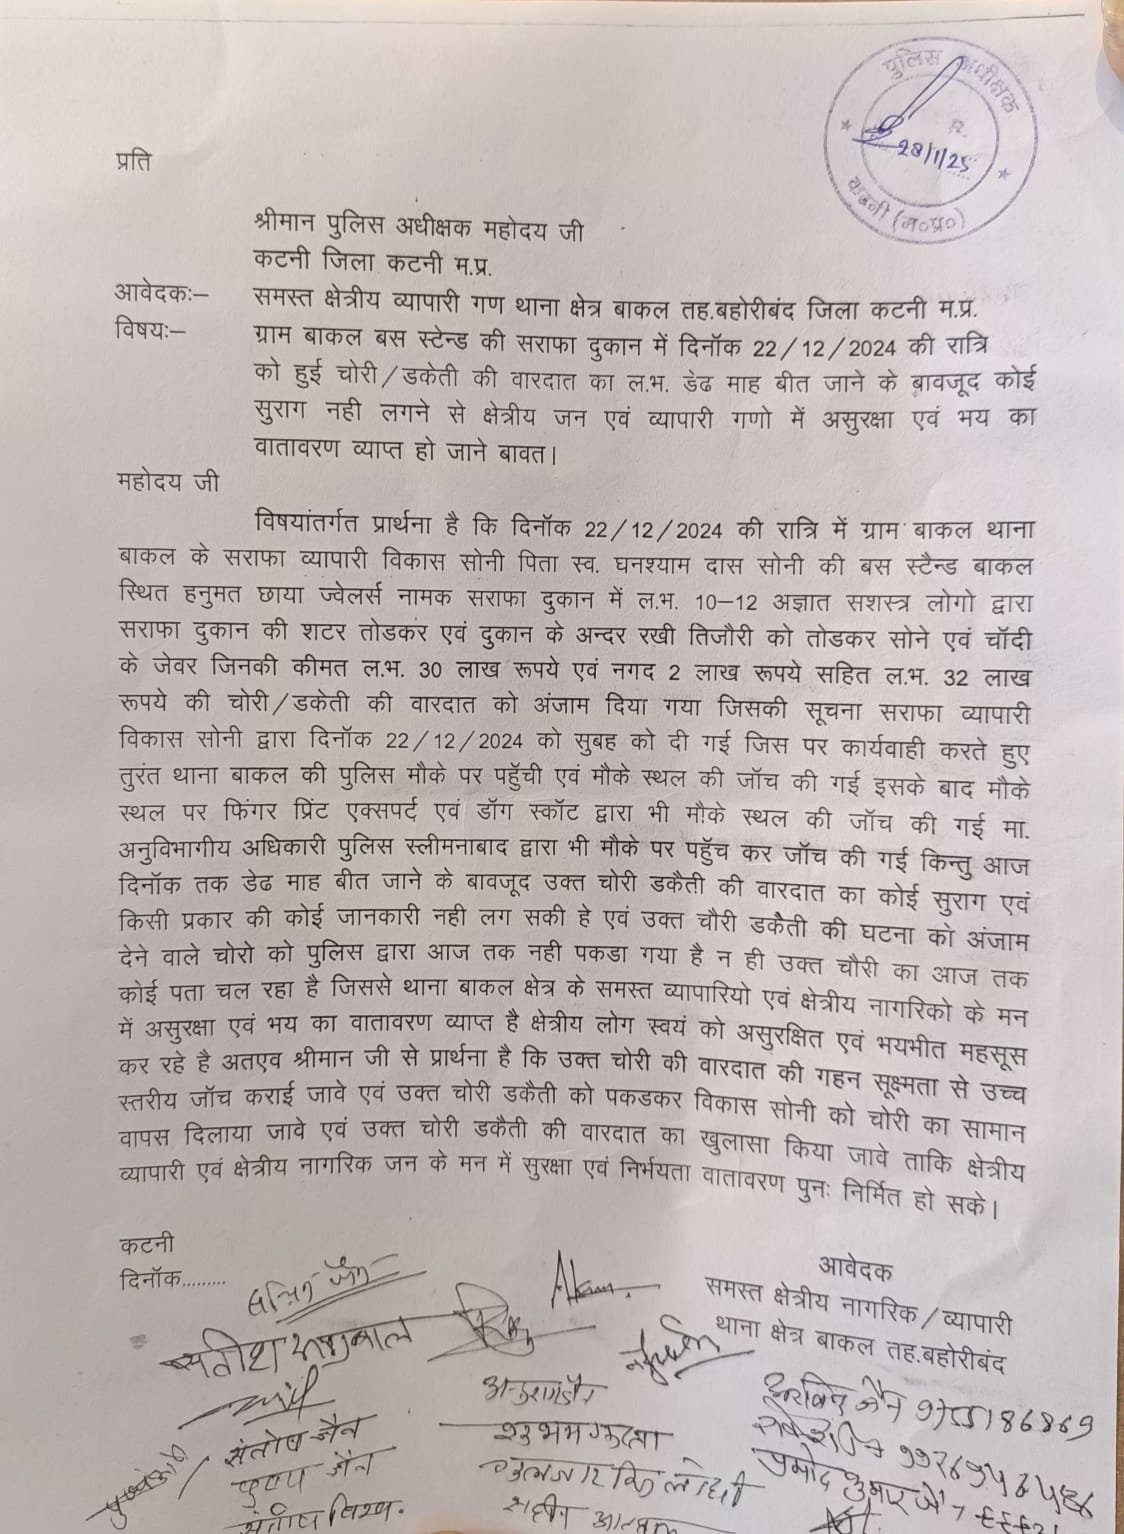 पुलिस अधीक्षक
28/1/25
कटनी (म०प्र०)
प्रति
श्रीमान पुलिस अधीक्षक महोदय जी
कटनी जिला कटनी म.प्र.
आवेदकः– समस्त क्षेत्रीय व्यापारी गण थाना क्षेत्र बाकल तह.बहोरीबंद जिला कटनी म.प्र.
विषयः– ग्राम बाकल बस स्टेन्ड की सराफा दुकान में दिनॉक 22/12/2024 की रात्रि
को हुई चोरी/डकेती की वारदात का ल.भ. डेढ माह बीत जाने के बावजूद कोई
सुराग नही लगने से क्षेत्रीय जन एवं व्यापारी गणो में असुरक्षा एवं भय का
वातावरण व्याप्त हो जाने बावत।
महोदय जी
विषयांतर्गत प्रार्थना है कि दिनॉक 22/12/2024 की रात्रि में ग्राम बाकल थाना
बाकल के सराफा व्यापारी विकास सोनी पिता स्व. घनश्याम दास सोनी की बस स्टैन्ड बाकल
स्थित हनुमत छाया ज्वेलर्स नामक सराफा दुकान में ल.भ. 10–12 अज्ञात सशस्त्र लोगो द्वारा
सराफा दुकान की शटर तोडकर एवं दुकान के अन्दर रखी तिजौरी को तोडकर सोने एवं चॉदी
के जेवर जिनकी कीमत ल.भ. 30 लाख रूपये एवं नगद 2 लाख रूपये सहित ल.भ. 32 लाख
रूपये की चोरी/डकेती की वारदात को अंजाम दिया गया जिसकी सूचना सराफा व्यापारी
विकास सोनी द्वारा दिनॉक 22/12/2024 को सुबह को दी गई जिस पर कार्यवाही करते हुए
तुरंत थाना बाकल की पुलिस मौके पर पहुॅची एवं मौके स्थल की जॉच की गई इसके बाद मौके
स्थल पर फिंगर प्रिंट एक्सपर्ट एवं डॉग स्कॉट द्वारा भी मौके स्थल की जॉच की गई मा.
अनुविभागीय अधिकारी पुलिस स्लीमनाबाद द्वारा भी मौके पर पहुॅच कर जॉच की गई किन्तु आज
दिनॉक तक डेढ माह बीत जाने के बावजूद उक्त चोरी डकैती की वारदात का कोई सुराग एवं
किसी प्रकार की कोई जानकारी नही लग सकी हे एवं उक्त चौरी डकैती की घटना को अंजाम
देने वाले चोरो को पुलिस द्वारा आज तक नही पकडा गया है न ही उक्त चौरी का आज तक
कोई पता चल रहा है जिससे थाना बाकल क्षेत्र के समस्त व्यापारियो एवं क्षेत्रीय नागरिको के मन
में असुरक्षा एवं भय का वातावरण व्याप्त है क्षेत्रीय लोग स्वयं को असुरक्षित एवं भयभीत महसूस
कर रहे है अतएव श्रीमान जी से प्रार्थना है कि उक्त चोरी की वारदात की गहन सूक्ष्मता से उच्च
स्तरीय जॉच कराई जावे एवं उक्त चोरी डकैती को पकडकर विकास सोनी को चोरी का सामान
वापस दिलाया जावे एवं उक्त चोरी डकैती की वारदात का खुलासा किया जावे ताकि क्षेत्रीय
व्यापारी एवं क्षेत्रीय नागरिक जन के मन में सुरक्षा एवं निर्भयता वातावरण पुनः निर्मित हो सके।
कटनी
दिनॉक.........
आवेदक
समस्त क्षेत्रीय नागरिक/व्यापारी
थाना क्षेत्र बाकल तह.बहोरीबंद
जैन
संतोष जैन
पुष्प जैन